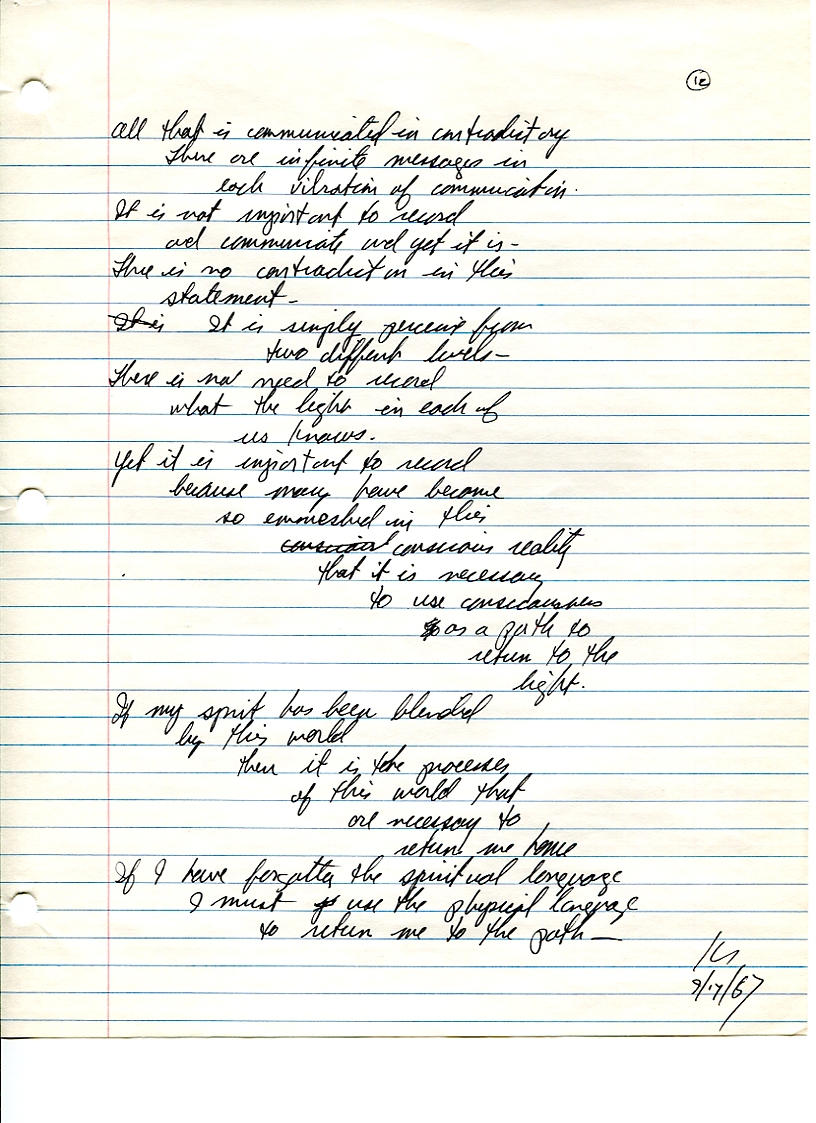 12
All that is communicated in contradictory
There are infinite messages in
each vibration of communication.
It is not important to record
and communicate and yet it is -
There is no contradiction in this
statement -
It is It is simply perceive from
two different levels -
There is not need to record
what the light in each of
us knows.
Yet it is important to record
because many have become
so enmeshed in this
conscious reality
that it is necessary
to use consciousness
as a path to
return to the
light.
If my spirit has been blended
by this world
then it is the processes
of this world that
are necessary to
return me home
If I have forgotten the spiritual language
I must use the physical language
to return me to the path —